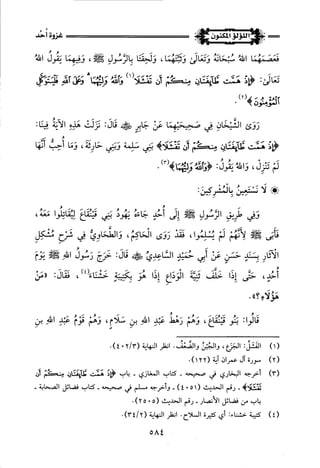 اللؤلؤ المكنون
غزوة أحد
فَعَصَمَهُمَا اللهُ سُبْحَانَهُ وَتَعَالَى وَثَبَّتَهُمَا، وَلَحِقَتَا بِالرَّسُولِ ﷺ، وَفِيهِمَا يَقُولُ اللهُ
تَعَالَى: ﴿إِذْ هَمَّت طَّآئِفَتَانِ مِنكُمْ أَن تَفْشَلَا(١) وَاللَّهُ وَلِيُّهُمَا وَعَلَى اللَّهِ فَلْيَتَوَكَّلِ
الْمُؤْمِنُونَ﴾(٢).
رَوَى الشَّيْخَانِ فِي صَحِيحَيْهِمَا عَنْ جَابِرٍ ﷺ قَالَ: نَزَلَتْ هَذِهِ الآيَةُ فِينَا:
﴿إِذْ هَمَّت طَّآئِفَتَانِ مِنكُمْ أَن تَفْشَلَا﴾ بَنِي سَلِمَةَ وَبَنِي حَارِثَةَ، وَمَا أُحِبُّ أَنَّهَا
لَمْ تَنْزِلْ، وَاللهُ يَقُولُ: ﴿وَاللَّهُ وَلِيُّهُمَا﴾(٣).
❁ لَا نَسْتَعِينُ بِالْمُشْرِكِينَ:
وَفِي طَرِيقِ الرَّسُولِ ﷺ إِلَى أُحُدٍ جَاءَهُ يَهُودُ بَنِي قَيْنُقَاعَ لِيُقَاتِلُوا مَعَهُ،
فَأَبَى ﷺ لِأَنَّهُمْ لَمْ يُسْلِمُوا، فَقَدْ رَوَى الْحَاكِمُ، وَالطَّحَاوِيُّ فِي شَرْحِ مُشْكِلِ
الآثَارِ بِسَنَدٍ حَسَنٍ عَنْ أَبِي حُمَيْدٍ السَّاعِدِيِّ ﷺ قَالَ: خَرَجَ رَسُولُ اللهِ ﷺ يَوْمَ
أُحُدٍ، حَتَّى إِذَا خَلَّفَ ثَنِيَّةَ الْوَدَاعِ إِذَا هُوَ بِكَتِيبَةٍ خَشْنَاءَ(٤)، فَقَالَ: «مَنْ
هَؤُلَاءِ؟».
قَالُوا: بَنُو قَيْنُقَاعَ، وَهُمْ رَهْطُ عَبْدِ اللهِ بنِ سَلَامٍ، وَهُمْ قَوْمُ عَبْدِ اللهِ بنِ
(١) الفَشَلُ: الجَزَعُ، والجُبْنُ والضَّعْفُ. انظر النهاية (٤٠٢/٣).
(٢) سورة آل عمران آية (١٢٢).
(٣) أخرجه البخاري في صحيحه - كتاب المغازي - باب ﴿إِذْ هَمَّت طَّآئِفَتَانِ مِنكُمْ أَن
تَفْشَلَا﴾ - رقم الحديث (٤٠٥١) - وأخرجه مسلم في صحيحه - كتاب فضائل الصحابة -
باب من فضائل الأنصار - رقم الحديث (٢٥٠٥).
(٤) كتيبة خشناء: أي كثيرة السلاح. انظر النهاية (٣٤/٢).
٥٨٤